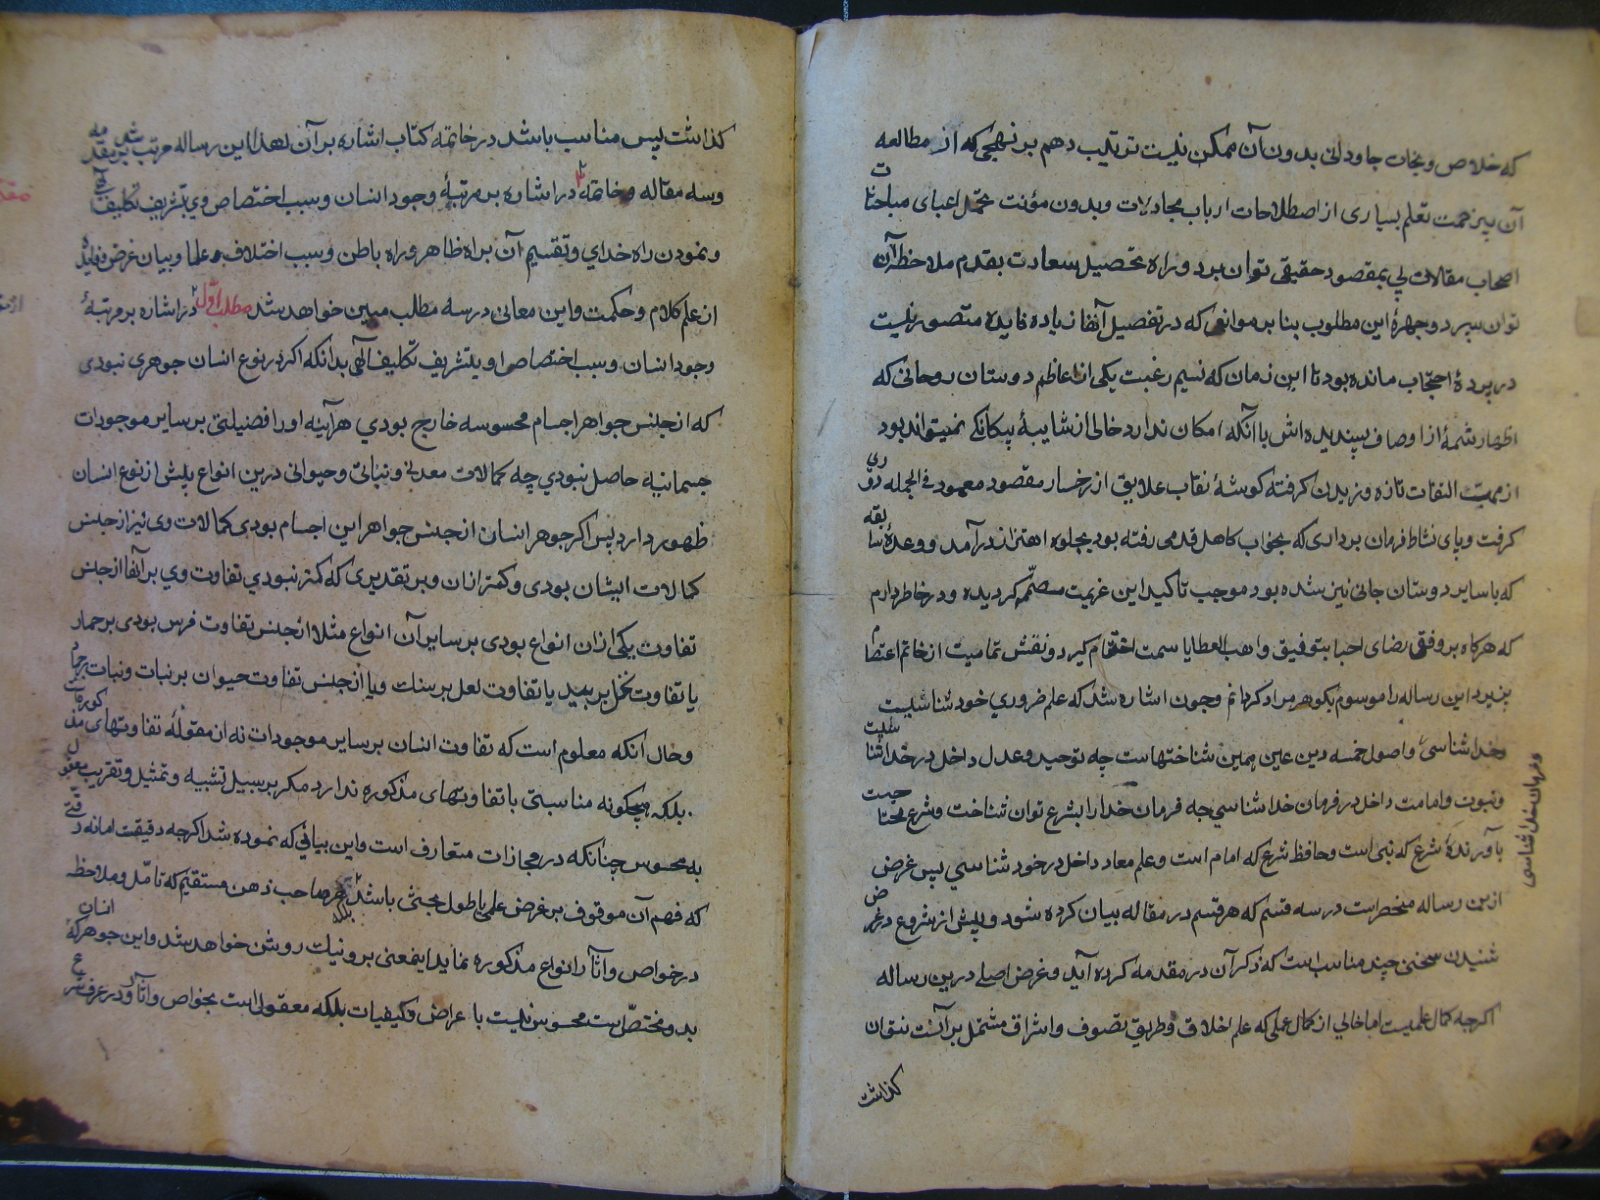 که خلاص و نجات جاودانی بدون آن ممکن نیست ترتیب دهم بر نهجی که از مطالعه
آن بی زحمت تعلم بسیاری از اصطلاحات ارباب مجادلات و بدون مؤنت تحمل اعبای مباحثات
اصحاب مقالات پی بمقصود حقیقی توان برد و راه تحصیل سعادت بقدم ملاحظه آن
توان سپرد و چهرهٔ این مطلوب بنا بر موانعی که در تفصیل آنها زیاده فایده متصور نیست
در پردهٔ احتجاب مانده بود تا این زمان که نسیم رغبت یکی از اعاظم دوستان روحانی که
اظهار شمهٔ از اوصاف پسندیده اش با آنکه امکان ندارد خالی از شایبهٔ بیکانکی نمیتواند بود
از مهب التفات تازه وزیدن کرفته کوشهٔ نقاب علایق از رخسار مقصود معهود فی الجمله دوری
کرفت و پای نشاط فرمان برداری که بخواب کاهل قدمی رفته بود بجلوه اهتزاز درآمد و وعدهٔ سابقه
که با سایر دوستان جانی نیز شده بود موجب تاکید این عزیمت مصمم کردیده و در خاطر دارم
که هرکاه بر وفق رضای احبا بتوفیق واهب العطایا سمت اختتام کیرد و نقش تمامیت از خاتم اعتصام
پذیرد این رساله را موسوم بکوهر مراد کردانم و چون اشاره شد که علم ضروری خود شناسیست
و خدا شناسی و اصول خمسه دین عین همین شناختهاست چه توحید و عدل داخل در خدا شناسیست
و فرمان خدا شناسی
و نبوت و امامت داخل در فرمان خدا شناسی چه فرمان خدا را بشرع توان شناخت و شرع محتاجست
بآورندهٔ شرع که نبی است و حافظ شرع که امام است و علم معاد داخل در خود شناسی پس غرض
ازین رساله منحصر است در سه قسم که هر قسم در مقاله بیان کرده شود و پیش از شروع در غرض
شنیدن سخنی چند مناسب است که ذکر آن در مقدمه کرده آید و غرض اصلی درین رساله
اکرچه کمال علمیست اما خالی از کمال عملی که علم اخلاق و طریق تصوف و اشراق مشتمل بر آنست نتوان
کذاشت
کذاشت پس مناسب باشد در خاتمه کتاب اشاره بر آن لهذا این رساله مرتب شد بر مقدمه
و سه مقاله و خاتمه در اشاره بر مرتبهٔ وجود انسان و سبب اختصاص وی بتشریف تکلیف الهی
و نمودن راه خدای و تقسیم آن براه ظاهر و راه باطن و سبب اختلاف علما و بیان غرض و فایده
از علم کلام و حکمت و این معانی در سه مطلب مبین خواهد شد مطلب اول در اشاره بر مرتبهٔ
وجود انسان و سبب اختصاص او بتشریف تکلیف الهی بدانکه اکر در نوع انسان جوهری نبودی
که از جنس جواهر اجسام محسوسه خارج بودی هرآینه او را فضیلتی بر سایر موجودات
جسمانیه حاصل نبودی چه کمالات معدنی و نباتی و حیوانی درین انواع بیش از نوع انسان
ظهور دارد پس اکر جوهر انسان از جنس جواهر این اجسام بودی کمالات وی نیز از جنس
کمالات ایشان بودی و کمتر از ان و بر تقدیری که کمتر نبودی تفاوت وی بر آنها از جنس
تفاوت یکی از ان انواع بودی بر سایر آن انواع مثلا از جنس تفاوت فرس بودی بر حمار
یا تفاوت نخل بر بید یا تفاوت لعل بر سنک و یا از جنس تفاوت حیوان بر نبات و نبات بر جماد
و حال آنکه معلوم است که تفاوت انسان بر سایر موجودات نه از مقولهٔ تفاوتهای مذکوره است
بلکه هیچکونه مناسبتی با تفاوتهای مذکوره ندارد مکر بر سبیل تشبیه و تمثیل و تقریب معقول
به محسوس چنانکه در مجازات متعارف است و این بیانی که نموده شد اکرچه دقیقست اما نه دقتی
که فهم آن موقوف بر غرض علمی یا طول بحثی باشد هر صاحب ذهن مستقیم که تامل و ملاحظه
در خواص و آثار انواع مذکوره نماید اینمعنی برو نیک روشن خواهد شد و این جوهر که انسان
بدو مختص است محسوس نیست باعراض و کیفیات بلکه معقولی است بخواص و آثار و در عرف شرع